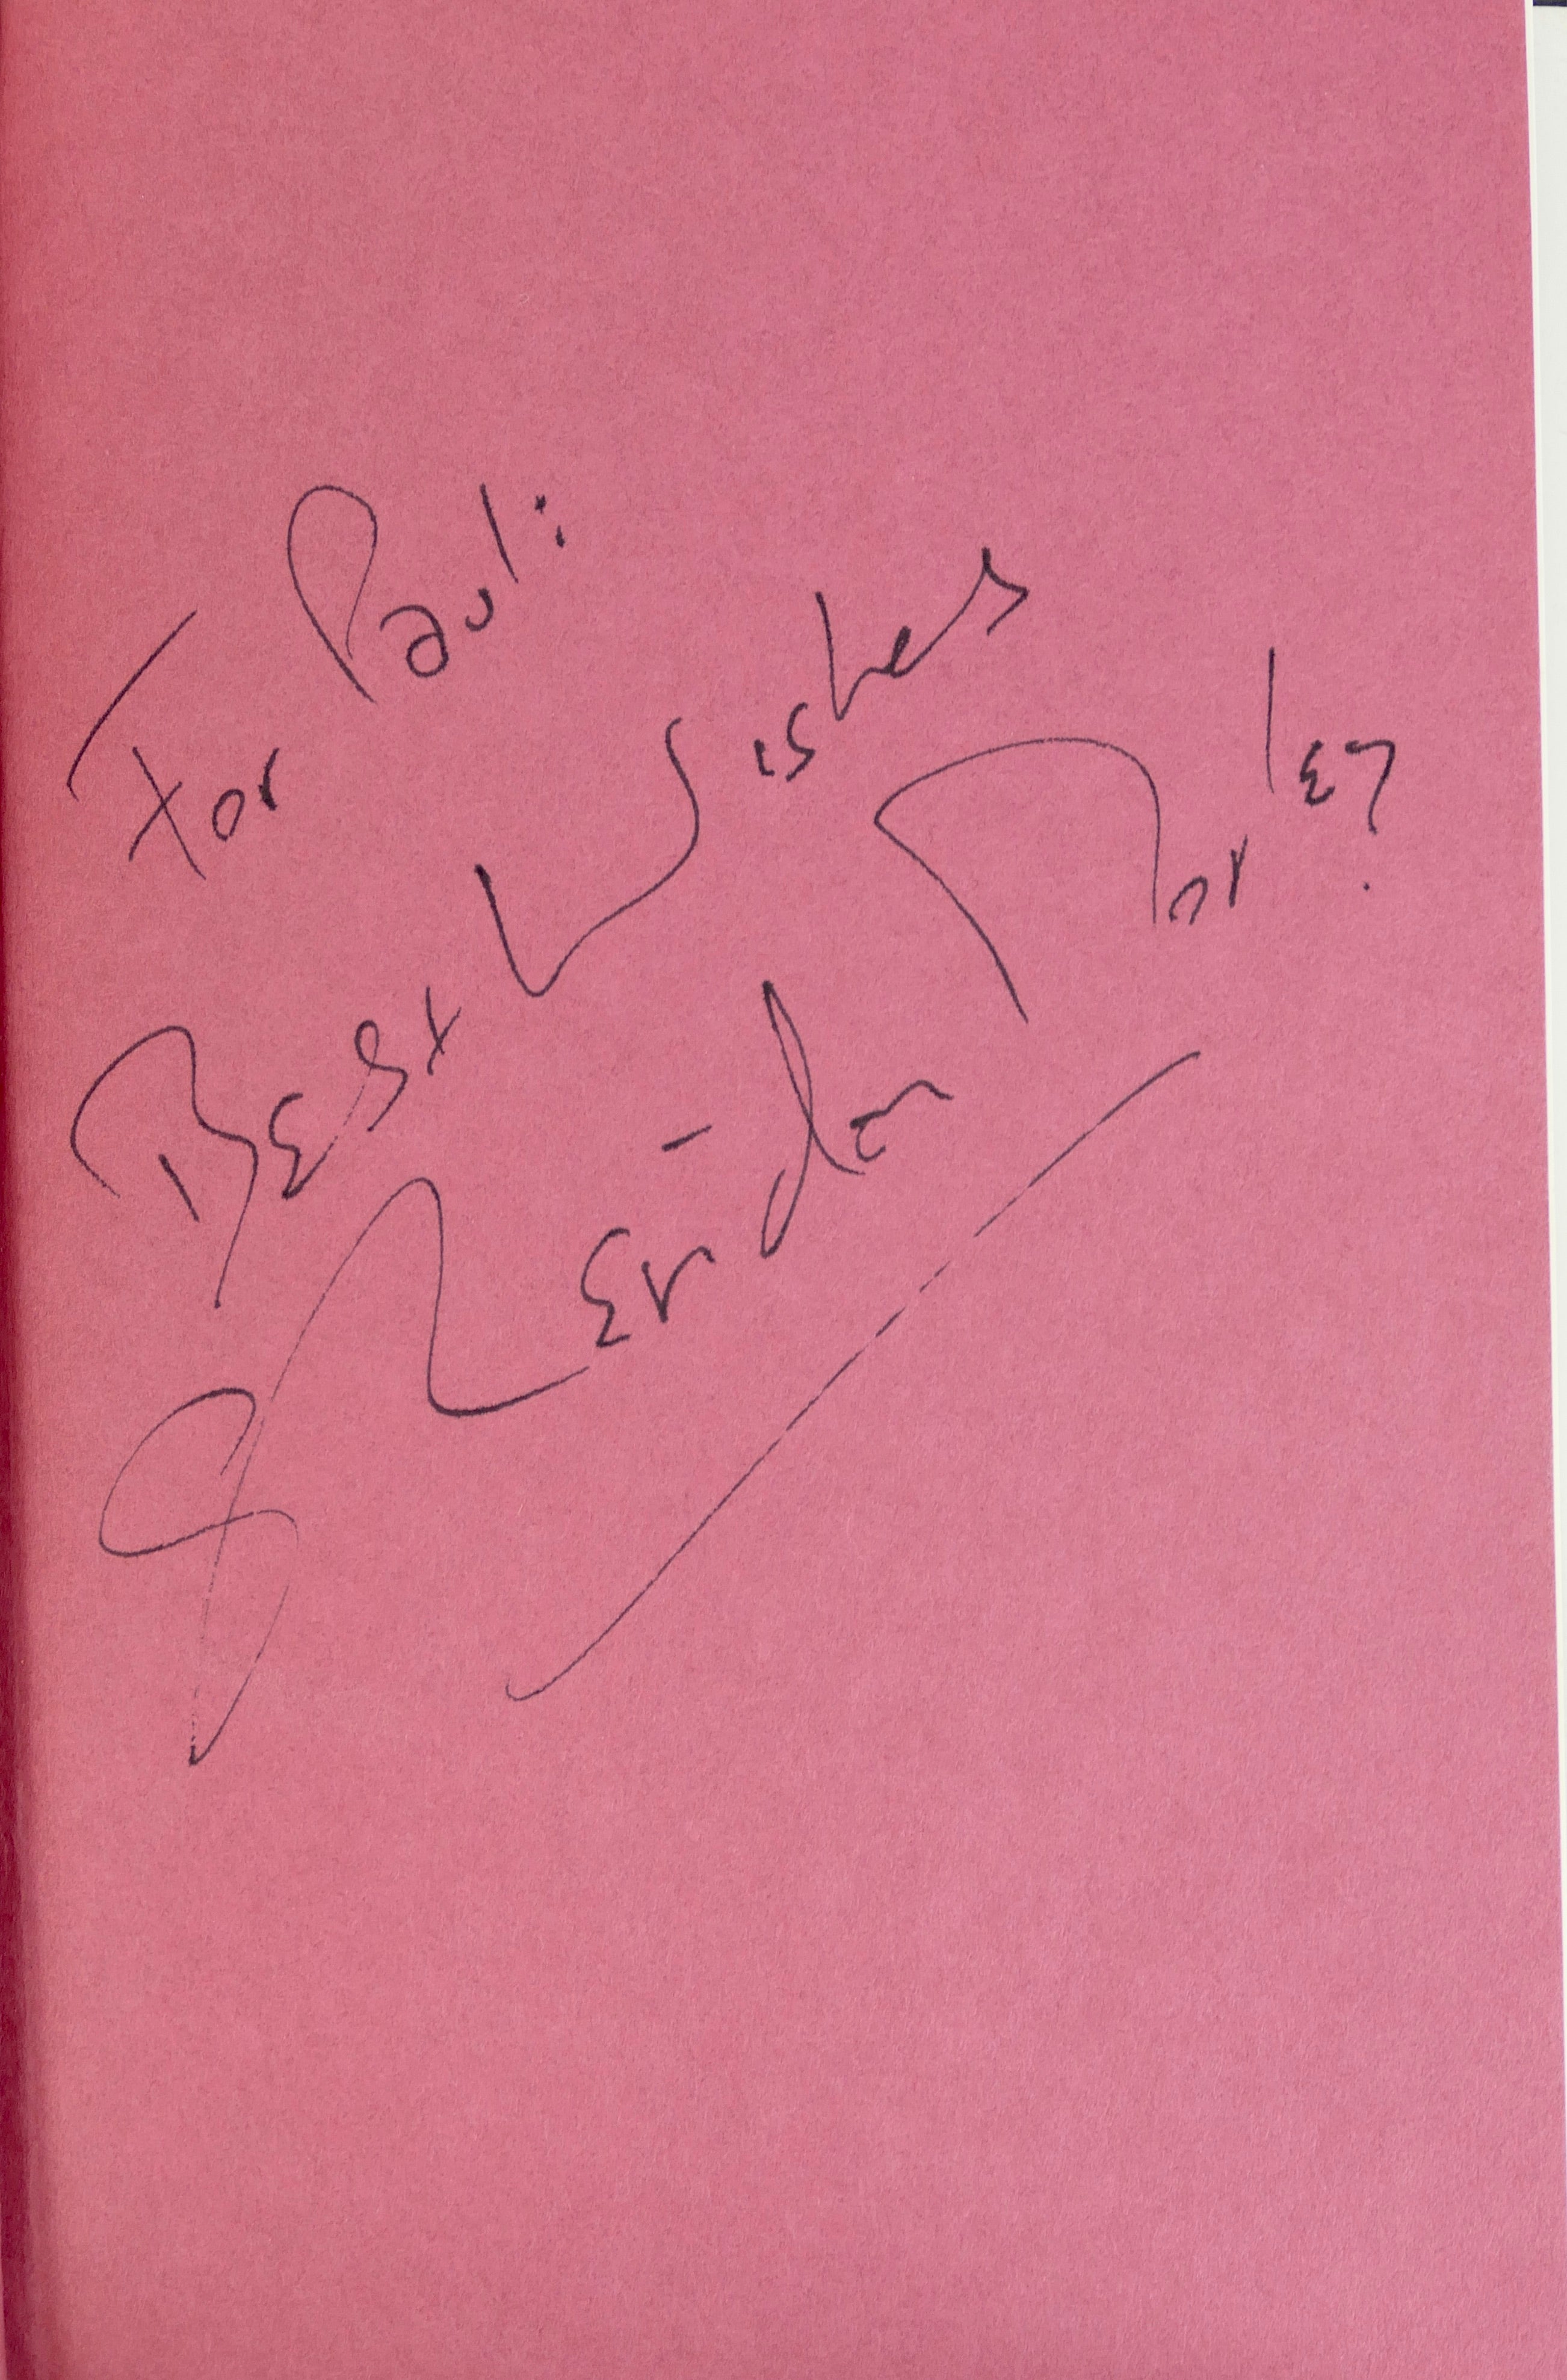 For Paul:
Best Wishes
Sheridan Morley